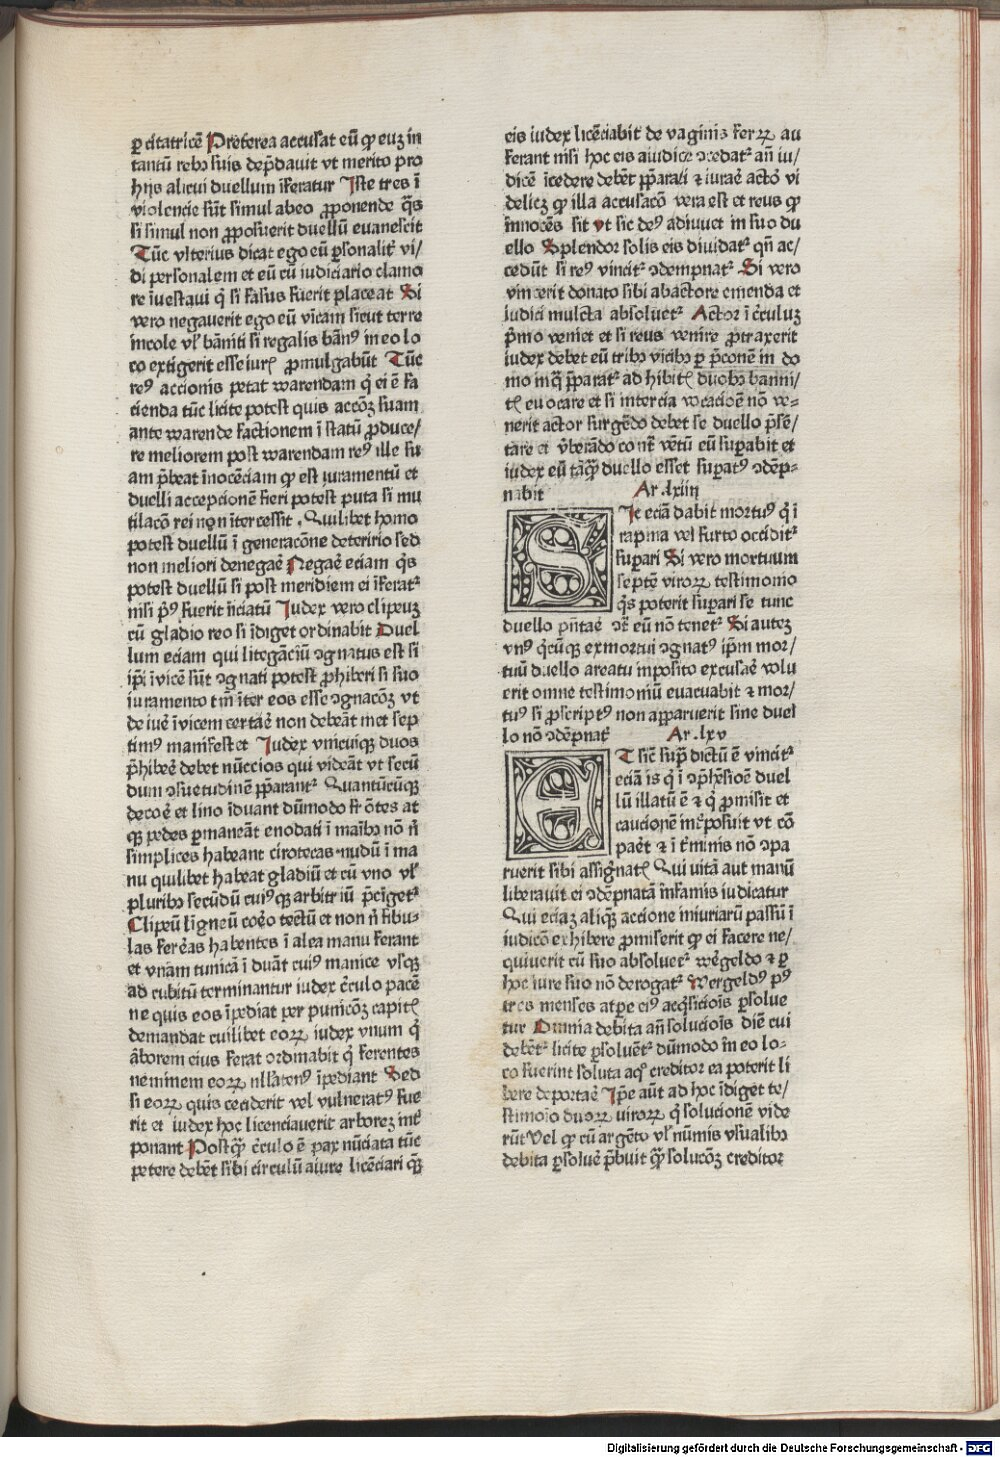 ꝑ citatricē Preterea accusat eū ꝙ euʒ in
tantū rebꝫ suis dep̄dauit vt merito pro
hijs alicui duellum īferatur Iste tres ī
violencie sūt simul abeo ꝓponende q̄s
si simul non ꝓposuerit duellū euanescit
Tūc vlterius dicat ego eū ꝑsonalit͛ vi/
di personalem et eū cū iudiciario clamo
re īuestiaui q̇ si fassus fuerit placeat Si
vero negauerit ego eū vīcam sicut terre
incole vl̕ bāniti si regalis bānꝰ in eo lo
co extigerit esse iurꝭ ꝓmulgabūt Tūc
reꝰ accionis petat warendam q̇ ei ē fa
cienda tūc licite potest quis accōʒ suam
ante warende factionem ī statū ꝓduce/
re meliorem post warendam reꝰ ille su
am p̄beat īnocēciam ꝙ est iuramentū et
duelli accepcionē fieri potest puta si mu
tilacō rei non īter cessit . Quilibet homo
potest duellū ī generacōne deteririo sed
non meliori denegaē Negaē eciam q̄s
potest duellū si post meridiem ei īferat͛
nisi p̄ꝰ fuerit īiciatū Iudex vero clipeuʒ
cū gladio reo si īdiget ordinabit Duel
lum eciam qui litegāciū ꝯgnatus est si
ip̄i īuicē sūt ꝯgnati potest ꝓhiberi si suo
iuramento tm̄ īter eos esse ꝯgnacōʒ vt
de iuē īvicem certaē non debeāt met sep
timꝰ manifestet Iudex vnicuiqꝫ duos
p̄hibeē debet nūccios qui videāt vt secū
dum ꝯsuetudinē p̄parant͛ Quantūcūqꝫ
de coē et lino īduant dūmodo fr̄ ōtes at
qꝫ pedes ꝑmaneāt enodati ī maībꝫ nō n̄
simplices habeant cirotecas nudū ī ma
nu quilibet habeat gladiū et cū vno vl̕
pluribꝫ secūdū cuiꝰqꝫ arbitriū p̄cīget͛
Clipeū līgneū coēo tectū et non n̄ fibu-
las ferēas habentes ī alea manu ferant
et vnam tunicā īduāt cuiꝰ manice vsqꝫ
ad cubitū terminantur iudex ēculo pacē
ne quis eos īpediat per punicōʒ capitꝭ
demandat cuilibet eorꝝ iudex vnum q̇
āborem eius ferat ordinabit q̇ ferentes
neminem eorꝝ nllatenꝰ īpediant Sed
si eorꝝ quis ceciderit vel vulneratꝰ fue
rit et iudex hoc licenciauerit arboreʒ int͛
ponant Postꝗ̄ ēculo ē pax nūciata tūc
petere debēt sibi circulū a iure licēciari qꝫ
eis iudex licēciabit de vaginis ferꝝ au
ferant nisi hoc eis a iudice ꝯcedat͛ an̄ iu/
dicē īcedere debēt p̄parati ⁊ iuraē actoꝰ vi
delicʒ ꝙ illa accusacō vera est et reus ꝙ
īnnocēs sit vt sic deꝰ adiuuet in suo du
ello Splendor solis eis diuidat͛ qn̄ ac/
cedūt si reꝰ vincit͛ ꝯdempnat͛ Si vero
vincerit donato sibi ab actore emenda et
iudici mulcta absoluet͛ Actor ī ēculuʒ
p̄mo veniet et si reus venire ꝓtraxerit
iudex debet eū tribꝫ vicibꝫ ꝑ p̄conē in do
mo in q̇ p̄parat͛ ad hibitꝭ duobꝫ banni/
tꝭ euocare et si intercia vocacioē nō ve-
nerit actor surgēdo debet se duello p̄sē/
tare et v̄berādo contͣ vētū eū suꝑabit et
iudex eū tāꝗ̄ duello esset suꝑatꝰ ꝯdēp-
nabit Ar .lxiiii
SIc eciā dabit mortuꝰ q̇ ī
rapina vel furto occidit͛
suꝑari Si vero mortuum
septē virorꝝ testimonio
q̄s poterit suꝑari se tunc
duello pn̄taē ꝯtͣ eū nō tenet͛ Si auteʒ
vnꝰ q̇cūqꝫ ex mortui ꝯgnatꝰ ip̄m mor/
tuū duello a reatu inposito excusaē volu
erit omne testimoniū euacuabit ⁊ mor/
tuꝰ si ꝓscriptꝰ non apparuerit sine duel
lo nō ꝯdēpnat͛ Ar .lxv
ET sic̄ sup̄ dictū ē vincit͛
eciā is q̇ ī ꝯp̄hēsioē duel
lū illatū ē ⁊ q̇ ꝓmisit et
caucionē int͛posuit vt cō
paēt ⁊ ī t͛minis nō ꝯpa
ruerit sibi assignatꝭ Qui vitā aut manū
liberauit ei ꝯdēpnatā īnfamis iudicatur
Qui eciaʒ aliq̄ accione iniuriarū passū ī
iudicō exhibere ꝓmiserit ꝙ ei facere ne/
quiuerit cū suo absoluet͛ wēgeldo ⁊ ꝑ
hoc iure suo nō derogat͛ Wergeldꝰ pꝰ
tres menses atpe eiꝰ acq̇sicioīs ꝑsolue
tur Omnia debita an̄ solucioīs diē cui
debēt͛ licite ꝑsoluēt͛ dūmodo in eo lo-
co fuerint soluta acsͥ creditor ea poterit li
bere deportaē Ip̄e aūt ad hoc īdiget te/
stimoīo duorꝝ virorꝝ q̇ solucionē vide
rūt Vel ꝙ cū argēto vl̕ nūmis vsualibꝫ
debita ꝑsoluē p̄buit ꝗ̄ solucōʒ creditor
Digitalisierung gefördert durch die Deutsche Forschungsgemeinschaft - DFG